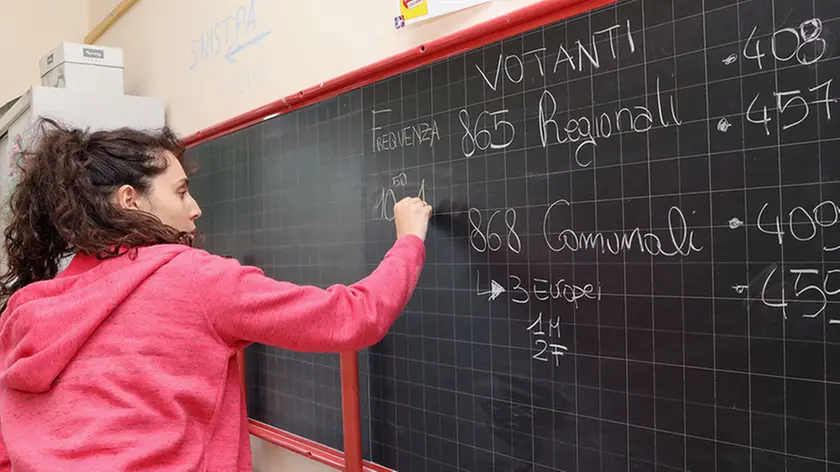 SINISTRA
VOTANTI
FREQUENZA 865 Regionali
10⁵⁰ 1
868 Comunali
3 Europei
1M
2F
408
457
409
45